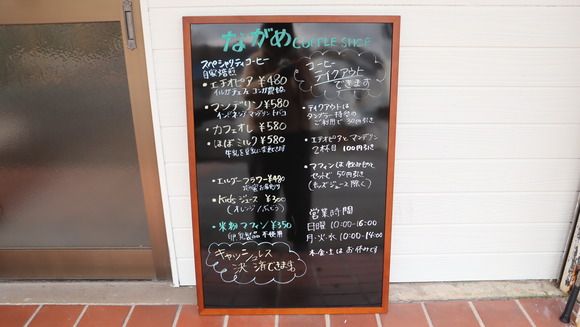 ながめ COFFEE SHOP
スペシャリティコーヒー
自家焙煎
・エチオピア ¥480
イルガチェフェ コンガ農協
・マンデリン ¥580
インドネシア マンデリン トバコ
・カフェオレ ¥580
・ほぼミルク ¥580
牛乳を豆乳に変更できます
・エルダーフラワー ¥480
・Kids ジュース ¥300
(オレンジ/ぶどう)
・米粉マフィン ¥350
卵、乳製品 不使用
キャッシュレス
決済できます
コーヒー
テイクアウト
できます
・テイクアウトは
タンブラー持参の
ご利用で 30円引き
・エチオピアとマンデリン
2杯目 100円引き
・マフィンは飲みものと
セットで 50円引き
(キッズジュース除く)
営業時間
日曜 10:00-16:00
月・火・水 10:00-14:00
木・金・土は お休みです